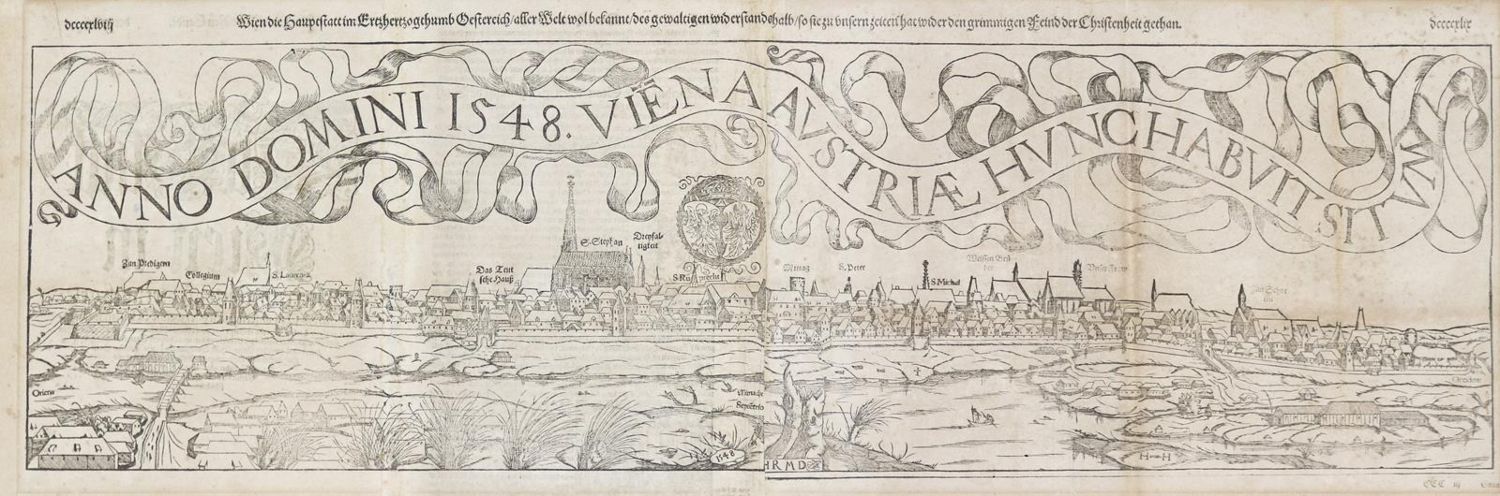 dccccxlviij
Wien die Hauptstatt im Ertzhertzogthumb Oestereich/aller Welt wol bekannt/des gewaltigen widerstandshalb/so sie zu vnsern zeiten hat wider den grimmigen Feind der Christenheit gethan.
dccccxlix
ANNO DOMINI 1548. VIĒNA AVSTRIÆ HVNC HABVIT SITVM
Zun Predigern
Collegium
S. Laurentz
Das Teut
sche Hauß
S. Stephan
Dreyfal-
tigkeit
S. Ruprecht
S. Peter
S. Michel
Weissen Brü
der
Vnser Fraw
Oriens
Septētrio
Occidens
1548
HRMD
H H